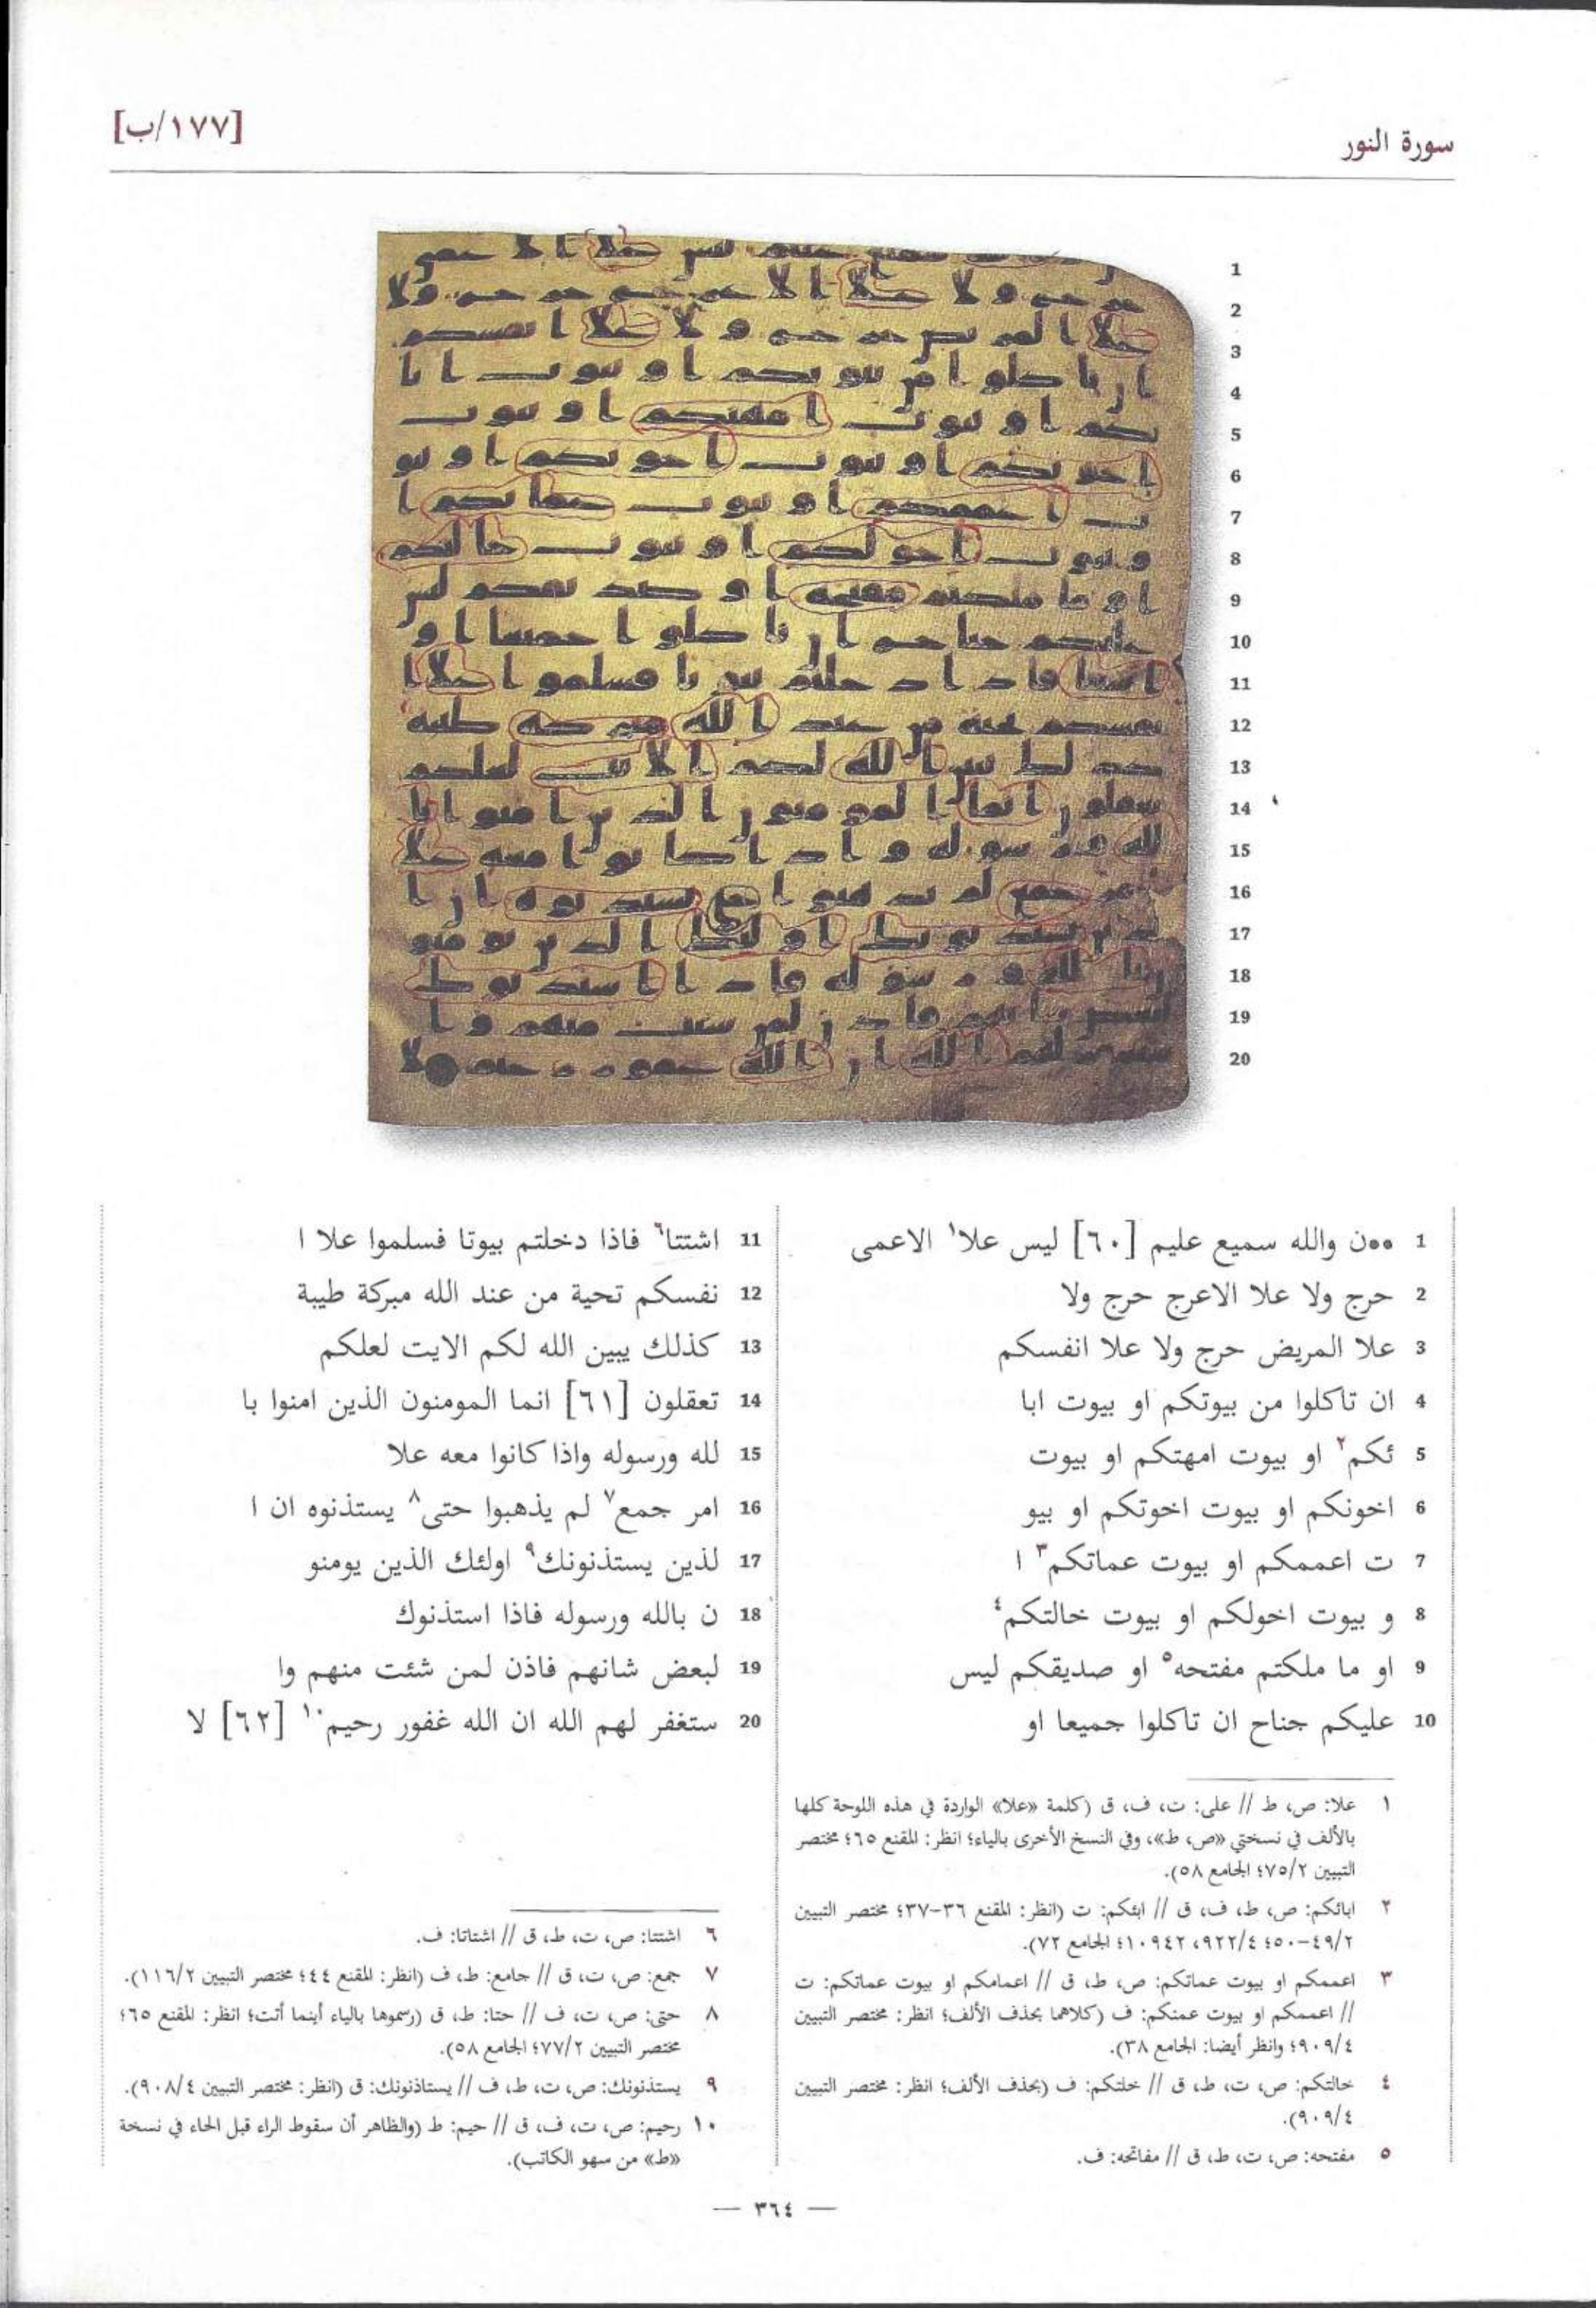 سورة النور
[١٧٧/ب]
1 ••ن والله سميع عليم [٦٠] ليس علا١ الاعمى
2 حرج ولا علا الاعرج حرج ولا
3 علا المريض حرج ولا علا انفسكم
4 ان تاكلوا من بيوتكم او بيوت ابا
5 ئكم٢ او بيوت امهتكم او بيوت
6 اخونكم او بيوت اخوتكم او بيو
7 ت اعممكم او بيوت عماتكم٣ ا
8 و بيوت اخولكم او بيوت خالتكم٤
9 او ما ملكتم مفتحه٥ او صديقكم ليس
10 عليكم جناح ان تاكلوا جميعا او
11 اشتتا٦ فاذا دخلتم بيوتا فسلموا علا ا
12 نفسكم تحية من عند الله مبركة طيبة
13 كذلك يبين الله لكم الايت لعلكم
14 تعقلون [٦١] انما المومنون الذين امنوا با
15 لله ورسوله واذا كانوا معه علا
16 امر جمع٧ لم يذهبوا حتى٨ يستذنوه ان ا
17 لذين يستذنونك٩ اولئك الذين يومنو
18 ن بالله ورسوله فاذا استذنوك
19 لبعض شانهم فاذن لمن شئت منهم وا
20 ستغفر لهم الله ان الله غفور رحيم١٠ [٦٢] لا
١ علا: ص، ط // على: ت، ف، ق (كلمة «علا» الواردة في هذه اللوحة كلها
بالألف في نسختي «ص، ط»، وفي النسخ الأخرى بالياء؛ انظر: المقنع ٦٥؛ مختصر
التبيين ٧٥/٢؛ الجامع ٥٨).
٢ ابائكم: ص، ط، ف، ق // ابئكم: ت (انظر: المقنع ٣٦-٣٧؛ مختصر التبيين
٤٩/٢-٥٠؛ ٩٢٢/٤، ٩٤٢ ١٠؛ الجامع ٧٢).
٣ اعممكم او بيوت عماتكم: ص، ط، ق // اعمامكم او بيوت عماتكم: ت
// اعممكم او بيوت عمتكم: ف (كلاهما بحذف الألف؛ انظر: مختصر التبيين
٩٠٩/٤؛ وانظر أيضا: الجامع ٣٨).
٤ خالتكم: ص، ت، ط، ق // خلتكم: ف (بحذف الألف؛ انظر: مختصر التبيين
٩٠٩/٤).
٥ مفتحه: ص، ت، ط، ق // مفاتحه: ف.
٦ اشتتا: ص، ت، ط، ق // اشتاتا: ف.
٧ جمع: ص، ت، ق // جامع: ط، ف (انظر: المقنع ٤٤؛ مختصر التبيين ١١٦/٢).
٨ حتى: ص، ت، ف // حتا: ط، ق (رسموها بالياء أينما أتت؛ انظر: المقنع ٦٥؛
مختصر التبيين ٧٧/٢؛ الجامع ٥٨).
٩ يستذنونك: ص، ت، ط، ف // يستاذنونك: ق (انظر: مختصر التبيين ٩٠٨/٤).
١٠ رحيم: ص، ت، ف، ق // حيم: ط (والظاهر أن سقوط الراء قبل الحاء في نسخة
«ط» من سهو الكاتب).
— ٣٦٤ —